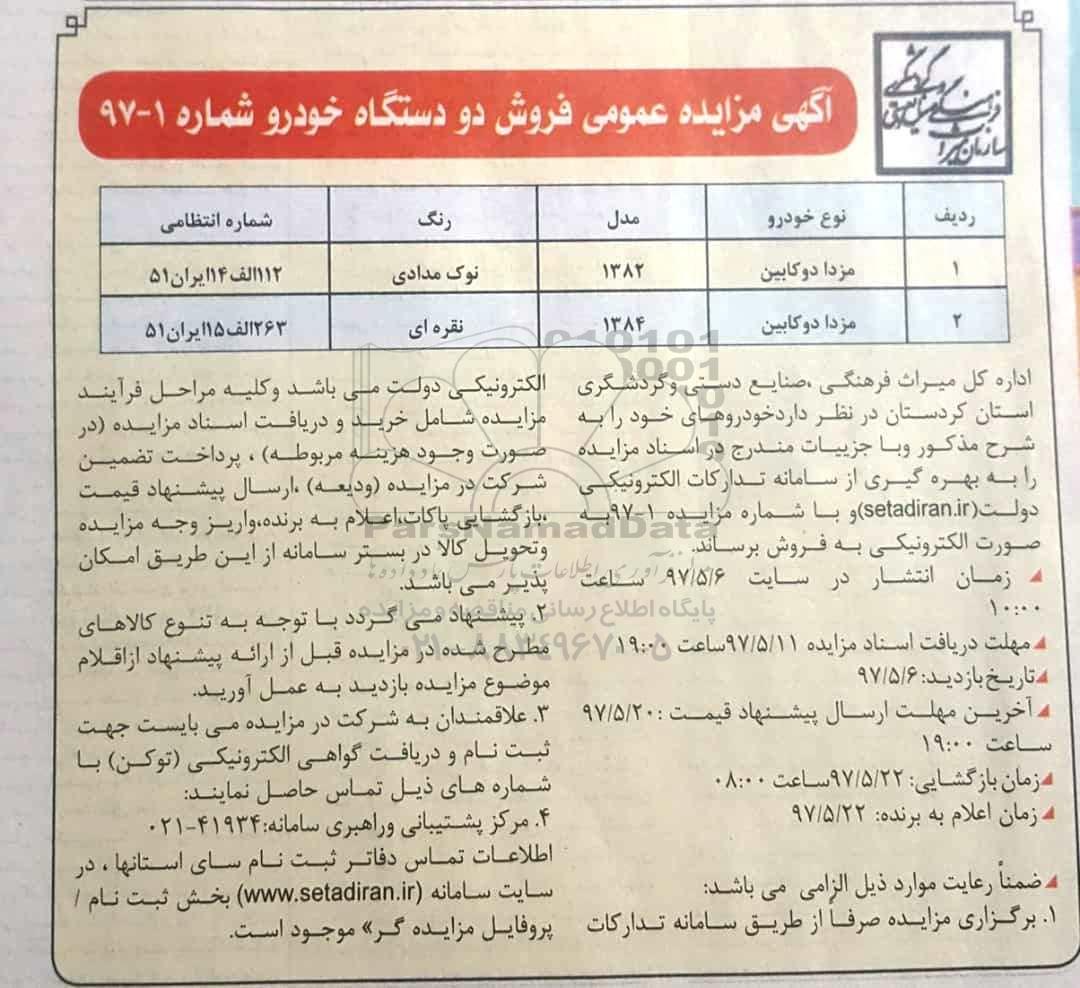 سازمان میراث فرهنگی صنایع دستی و گردشگری
آگهی مزایده عمومی فروش دو دستگاه خودرو شماره ۱-۹۷
ردیف نوع خودرو مدل رنگ شماره انتظامی
۱ مزدا دوکابین ۱۳۸۲ نوک مدادی ۱۱۲الف۱۴ایران۵۱
۲ مزدا دوکابین ۱۳۸۴ نقره ای ۲۶۳الف۱۵ایران۵۱
اداره کل میراث فرهنگی ،صنایع دستی وگردشگری
استان کردستان در نظر داردخودروهای خود را به
شرح مذکور وبا جزییات مندرج در اسناد مزایده
را به بهره گیری از سامانه تدارکات الکترونیکی
دولت(setadiran.ir)و با شماره مزایده ۱-۹۷به
صورت الکترونیکی به فروش برساند.
زمان انتشار در سایت ۹۷/۵/۶ ساعت
۱۰:۰۰
مهلت دریافت اسناد مزایده ۹۷/۵/۱۱ساعت ۱۹:۰۰
تاریخ بازدید:۹۷/۵/۶
آخرین مهلت ارسال پیشنهاد قیمت :۹۷/۵/۲۰
ساعت ۱۹:۰۰
زمان بازگشایی: ۹۷/۵/۲۲ساعت ۰۸:۰۰
زمان اعلام به برنده: ۹۷/۵/۲۲
ضمناً رعایت موارد ذیل الزامی می باشد:
۱. برگزاری مزایده صرفاً از طریق سامانه تدارکات
الکترونیکی دولت می باشد وکلیه مراحل فرآیند
مزایده شامل خرید و دریافت اسناد مزایده (در
صورت وجود هزینه مربوطه) ، پرداخت تضمین
شرکت در مزایده (ودیعه) ،ارسال پیشنهاد قیمت
،بازگشایی پاکات،اعلام به برنده،واریز وجه مزایده
وتحویل کالا در بستر سامانه از این طریق امکان
پذیر می باشد.
۲. پیشنهاد می گردد با توجه به تنوع کالاهای
مطلرح شده در مزایده قبل از ارائه پیشنهاد ازاقلام
موضوع مزایده بازدید به عمل آورید.
۳. علاقمندان به شرکت در مزایده می بایست جهت
ثبت نام و دریافت گواهی الکترونیکی (توکن) با
شماره های ذیل تماس حاصل نمایند:
۴. مرکز پشتیبانی وراهبری سامانه:۴۱۹۳۴-۰۲۱
اطلاعات تماس دفاتر ثبت نام سای استانها ، در
سایت سامانه (www.setadiran.ir) بخش ثبت نام /
پروفایل مزایده گر» موجود است.
ParsNamadData
پایگاه اطلاع رسانی مناقصه و مزایده
۰۲۱-۸۸۳۴۹۶۷۰-۵